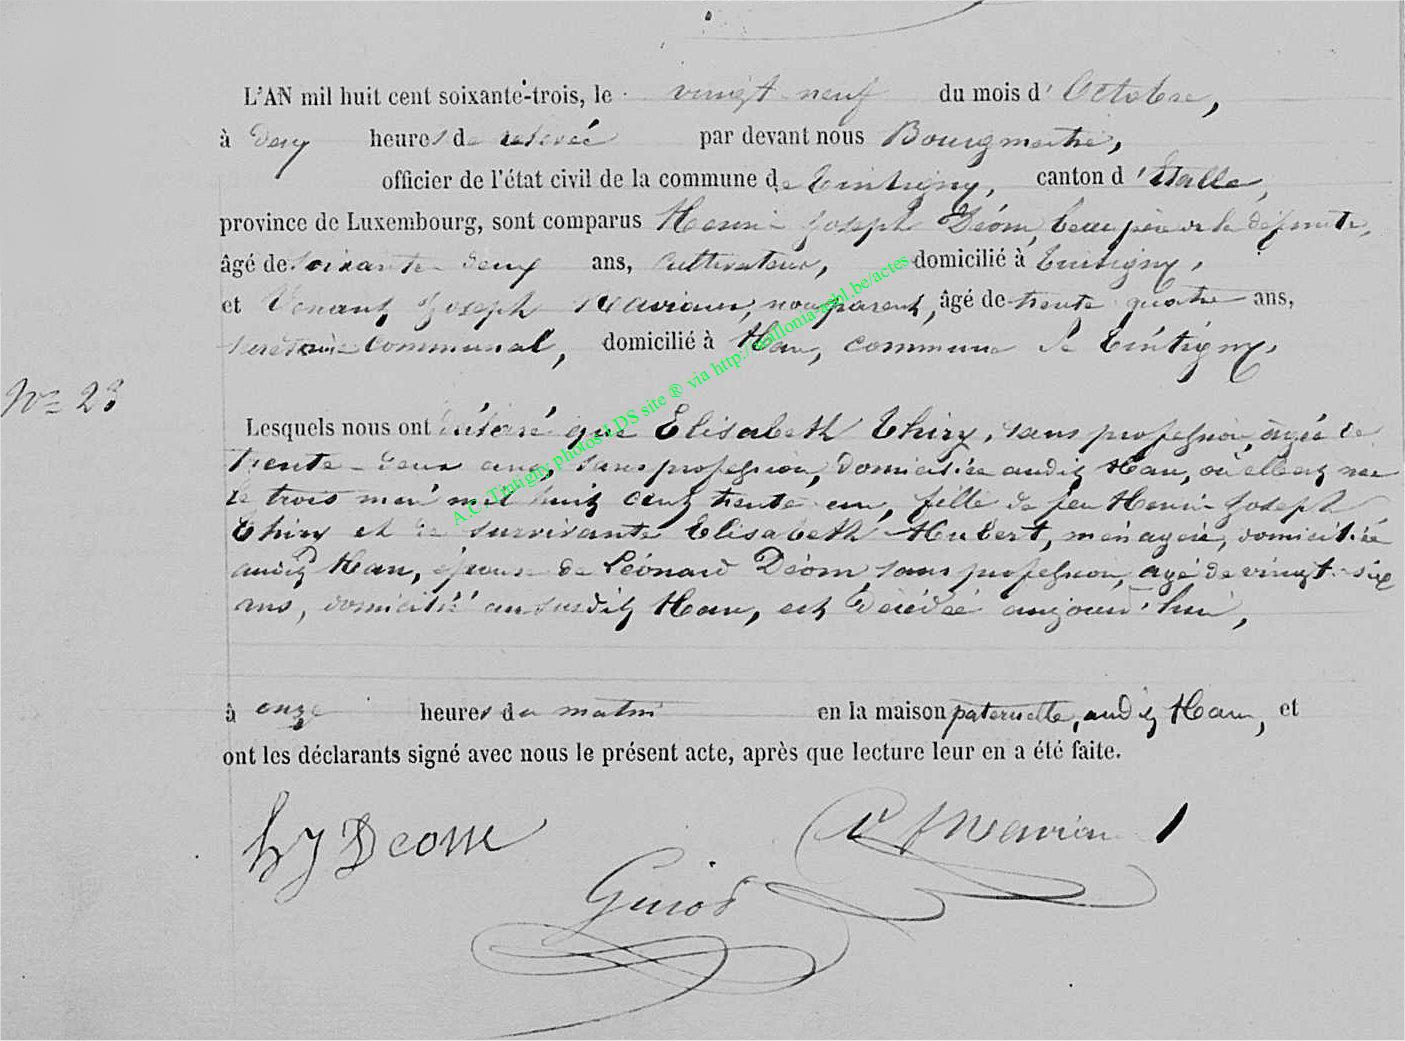 L'AN mil huit cent soixante-trois, le vingt neuf du mois d'Octobre,
à deux heures de relevée par devant nous Bourgmestre,
officier de l'état civil de la commune de Tintigny, canton d'Etalle,
province de Luxembourg, sont comparus Henri Joseph Déom, beau père de la défunte,
âgé de soixante deux ans, cultivateur, domicilié à Tintigny,
et Venant Joseph non parent, âgé de trente quatre ans,
secrétaire communal, domicilié à Han, commune de Tintigny,
N° 23
Lesquels nous ont déclaré que Elisabeth Thiry, sans profession, âgée de
trente-deux ans, sans profession, domiciliée audit Han, où elle est née
le trois mars mil huit cent trente un, fille de feu Henri Joseph
Thiry et de survivante Elisabeth Hubert, ménagère, domiciliée
audit Han, épouse de Léonard Déom, sans profession, âgé de vingt-six
ans, domicilié au susdit Han, est décédée aujourd'hui,
à onze heures du matin en la maison paternelle, audit Han, et
ont les déclarants signé avec nous le présent acte, après que lecture leur en a été faite.
hJ Deom
Guiot
A.C. Tintigny photos LDS site ® via http://wallonia-asbl.be/actes